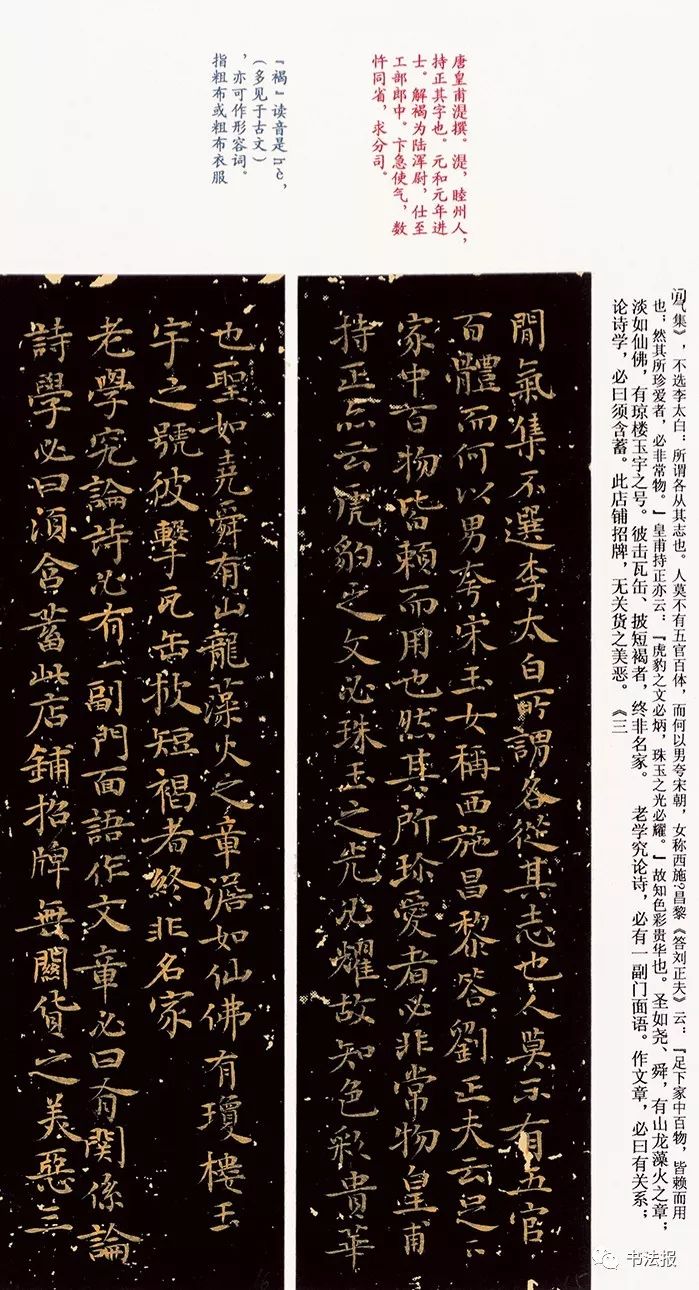 唐皇甫湜撰。湜，睦州人，
持正其字也。元和元年进
士。解褐为陆浑尉，仕至
工部郎中。卞急使气，数
忤同省，求分司。
『褐』读音是hè，
（多见于古文）
，亦可作形容词。
指粗布或粗布衣服
间气集》，不选李太白：所谓各从其志也。人莫不有五官百体，而何以男夸宋朝，女称西施?昌黎《答刘正夫》云：『足下家中百物，皆赖而用
也；然其所珍爱者，必非常物。』皇甫持正亦云：『虎豹之文必炳，珠玉之光必耀。』故知色彩贵华也。圣如尧、舜，有山龙藻火之章；
淡如仙佛，有琼楼玉宇之号。彼击瓦缶、披短褐者，终非名家。 老学究论诗，必有一副门面语。作文章，必曰有关系；
论诗学，必曰须含蓄。此店铺招牌，无关货之美恶。《三
間氣集不選李太白所謂各從其志也人莫不有五官
百體而何以男夸宋玉女稱西施昌黎答劉正夫云足下
家中百物皆賴而用也然其所珍愛者必非常物皇甫
持正亦云虎豹之文必珠玉之光必耀故知色彩貴華
也聖如堯舜有山龍藻火之章澹如仙佛有瓊樓玉
宇之號彼擊瓦缶披短褐者終非名家
老學究論詩必有一副門面語作文章必曰有関係論
詩學必曰須含蓄此店鋪招牌無關貨之美惡三
书法报